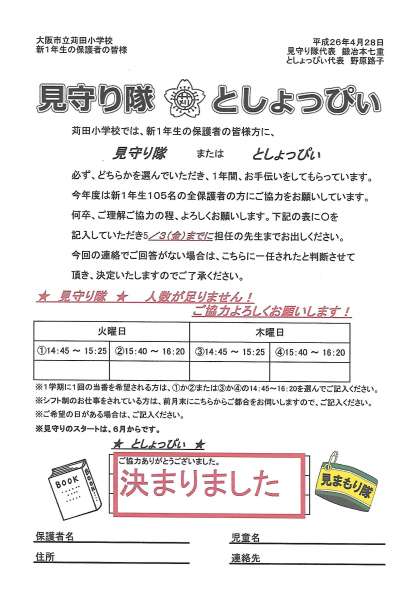 大阪市立苅田小学校
新1年生の保護者の皆様
平成26年4月28日
見守り隊代表 鍛冶本七重
としょっぴぃ代表 野原路子
見守り隊 としょっぴぃ
苅田小学校では、新1年生の保護者の皆様方に、
見守り隊 または としょっぴぃ
必ず、どちらかを選んでいただき、1年間、お手伝いをしてもらっています。
今年度は新1年生105名の全保護者の方にご協力をお願いしています。
何卒、ご理解ご協力の程、よろしくお願いします。下記の表に○を
記入していただき5/3(金)までに担任の先生までお出しください。
今回の連絡でご回答がない場合は、こちらに一任されたと判断させて
頂き、決定いたしますのでご了承ください。
★ 見守り隊 ★ 人数が足りません!
ご協力よろしくお願いします!
火曜日 木曜日
①14:45 ~ 15:25 ②15:40 ~ 16:20 ③14:45 ~ 15:25 ④15:40 ~ 16:20
※1学期に1回の当番を希望される方は、①か②または③か④の14:45~16:20を選んでご記入ください。
※シフト制のお仕事をされている方は、前月末にこちらからご都合をお伺いしますので、ご記入ください。
※ご希望の日がある場合は、ご記入ください。
※見守りのスタートは、6月からです。
★ としょっぴぃ ★
ご協力ありがとうございました。
決まりました
BOOK
BOOK
見まもり隊
保護者名 児童名
住所 連絡先